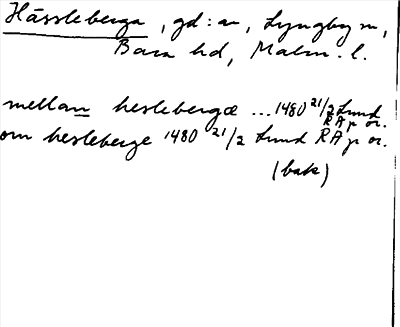 Hässleberga, gd: ar, Lyngby sn,
Bara hd, Malm. l.
mellan heslebergæ ... 1480 21/2 Lund RA p or.
om hesleberge 1480 21/2 Lund RA p or.
(bak)